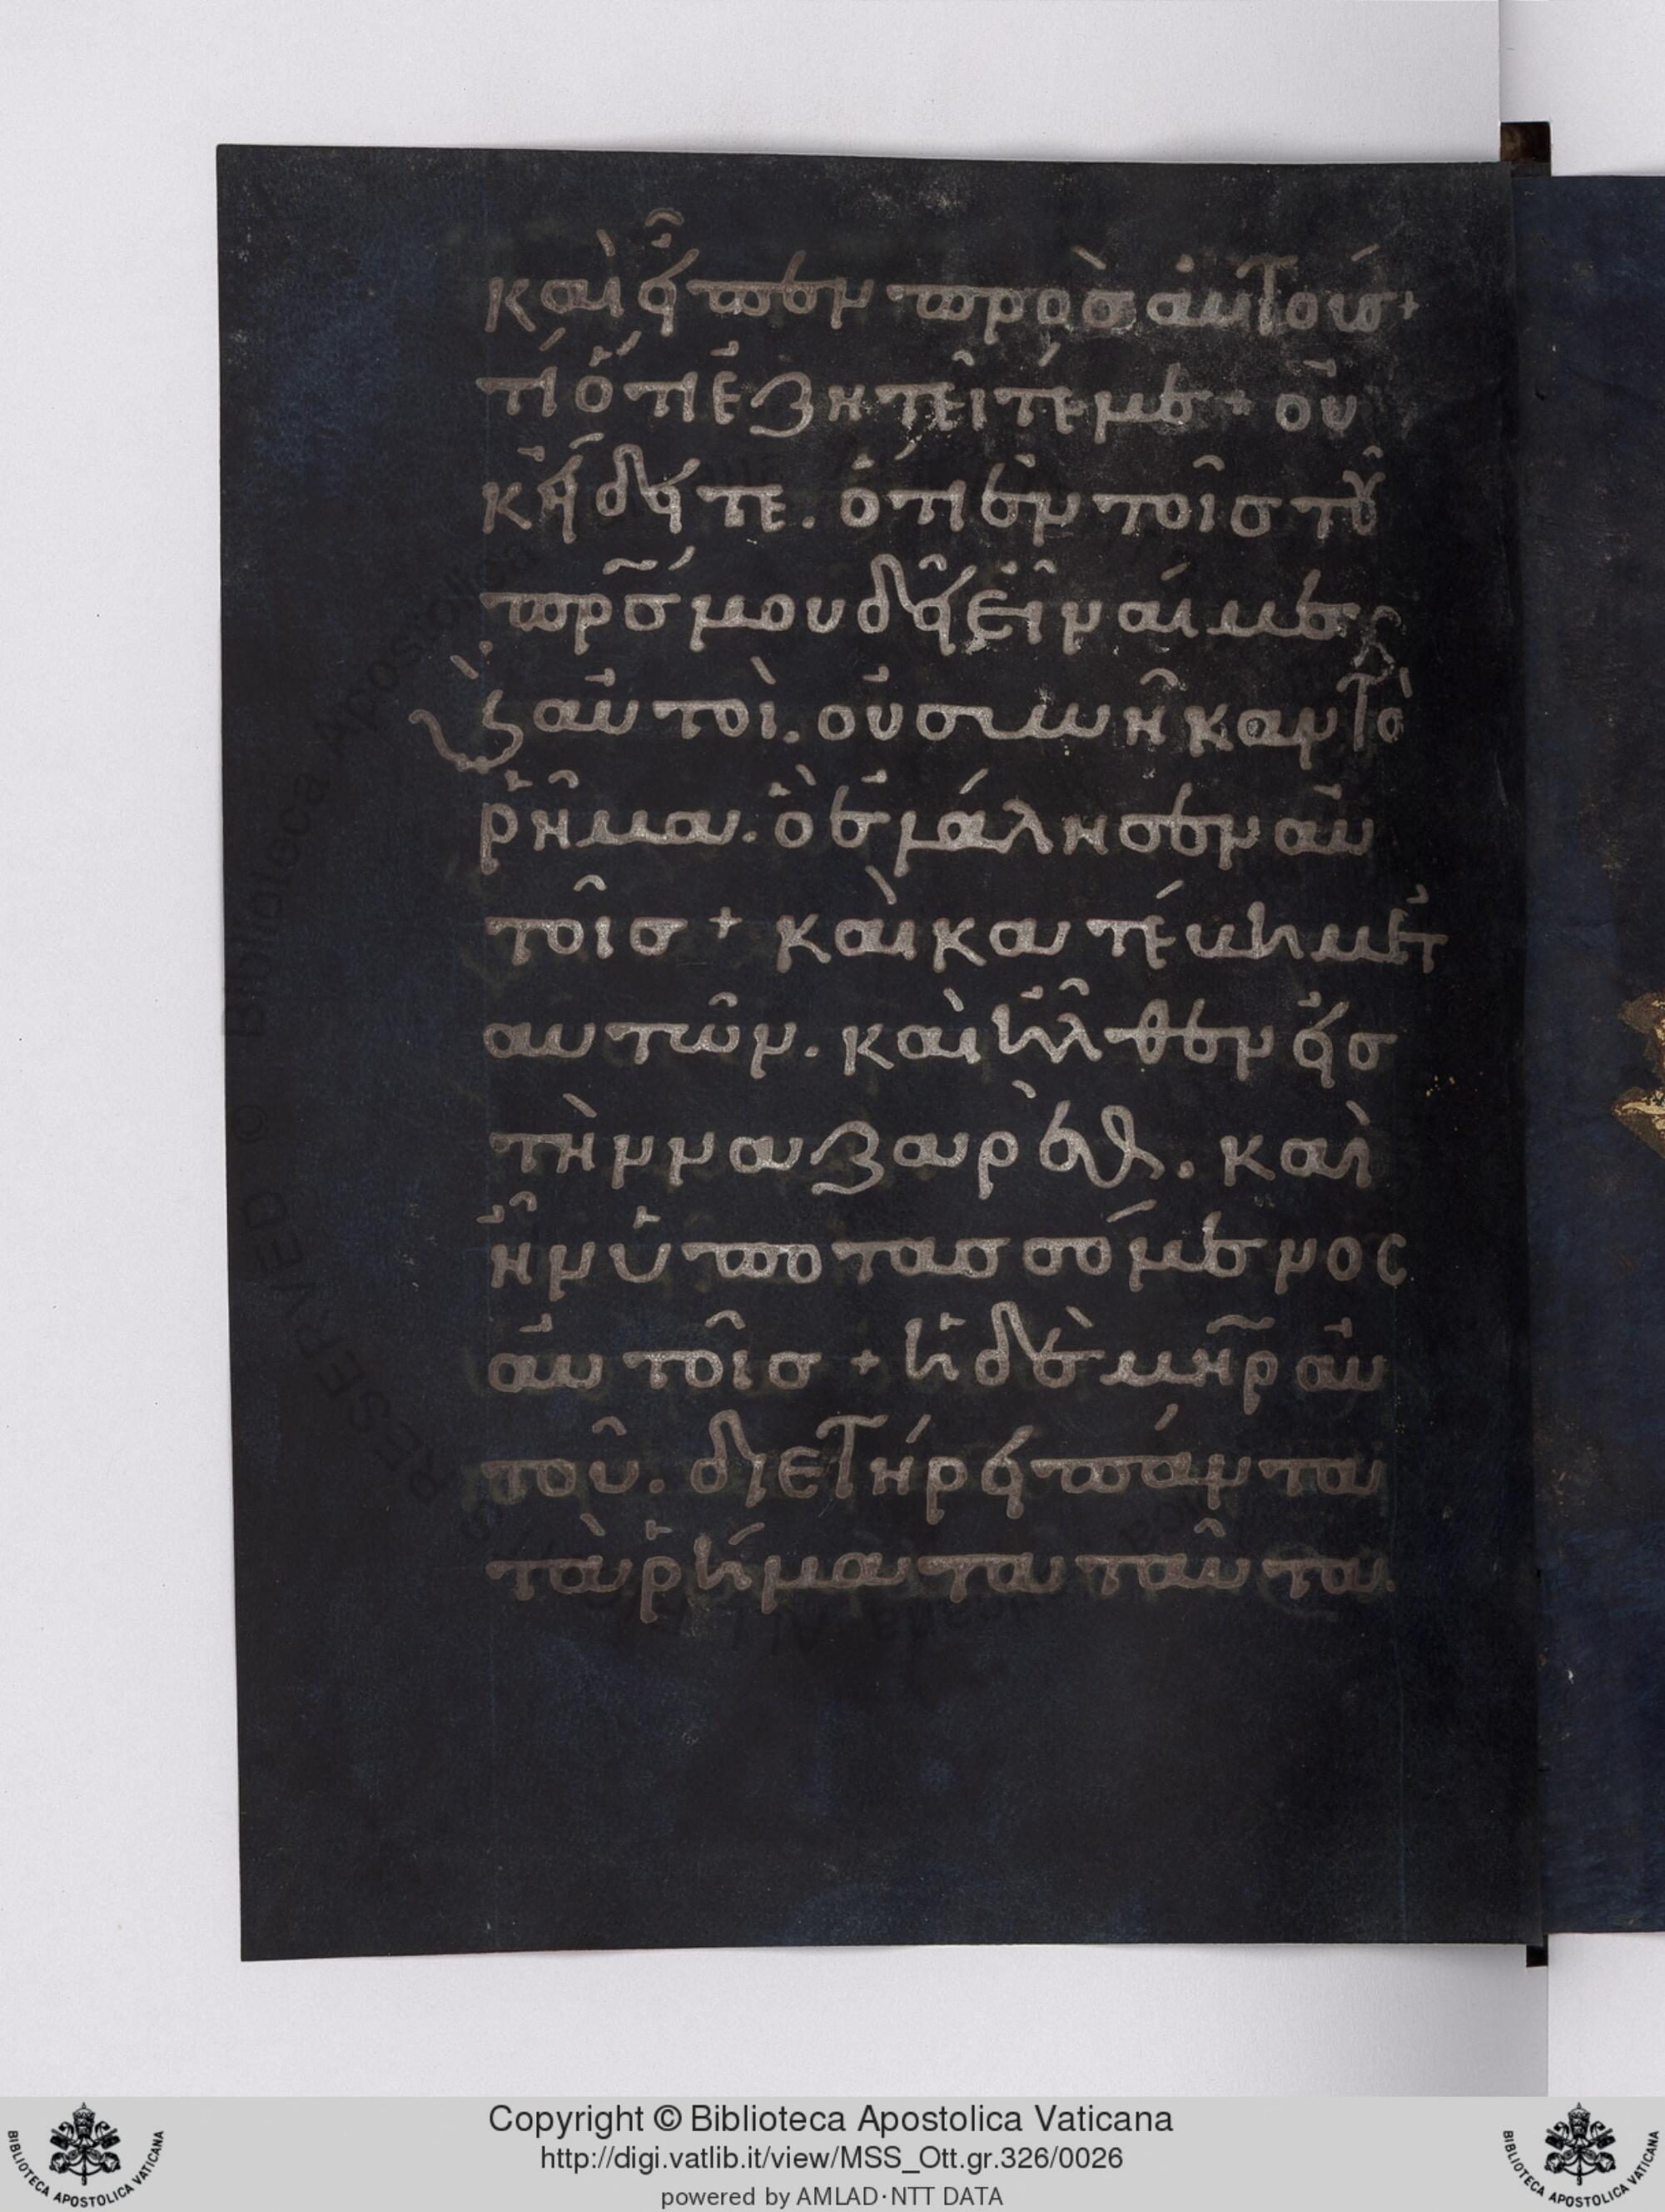 καὶ εἶπεν πρὸσ αὐτούσ+
τί ὅτι ἐζητεῖτέ με+ οὐ
κ ἤδειτε. ὅτι ἐν τοῖσ τοῦ
πρ̅σ μου δεῖ εἶναί με·
Καὶ αὐτοὶ. οὐ συνῆκαν τὸ
ῥῆμα. ὃ ἐλάλησεν αὐ
τοῖσ + καὶ κατέβη μετ'
αυτῶν. καὶ ἦλθεν εἰσ
τὴν ναζαρὲθ. καὶ
ἦν ὑποτασσόμενος
αὐτοῖσ + ἡ δὲ μη̅ρ αὐ
τοῦ. διετήρει πάντα
τὰ ῥήματα ταῦτα.
Copyright © Biblioteca Apostolica Vaticana
http://digi.vatlib.it/view/MSS_Ott.gr.326/0026
powered by AMLAD·NTT DATA
BIBLIOTECA APOSTOLICA VATICANA
BIBLIOTECA APOSTOLICA VATICANA